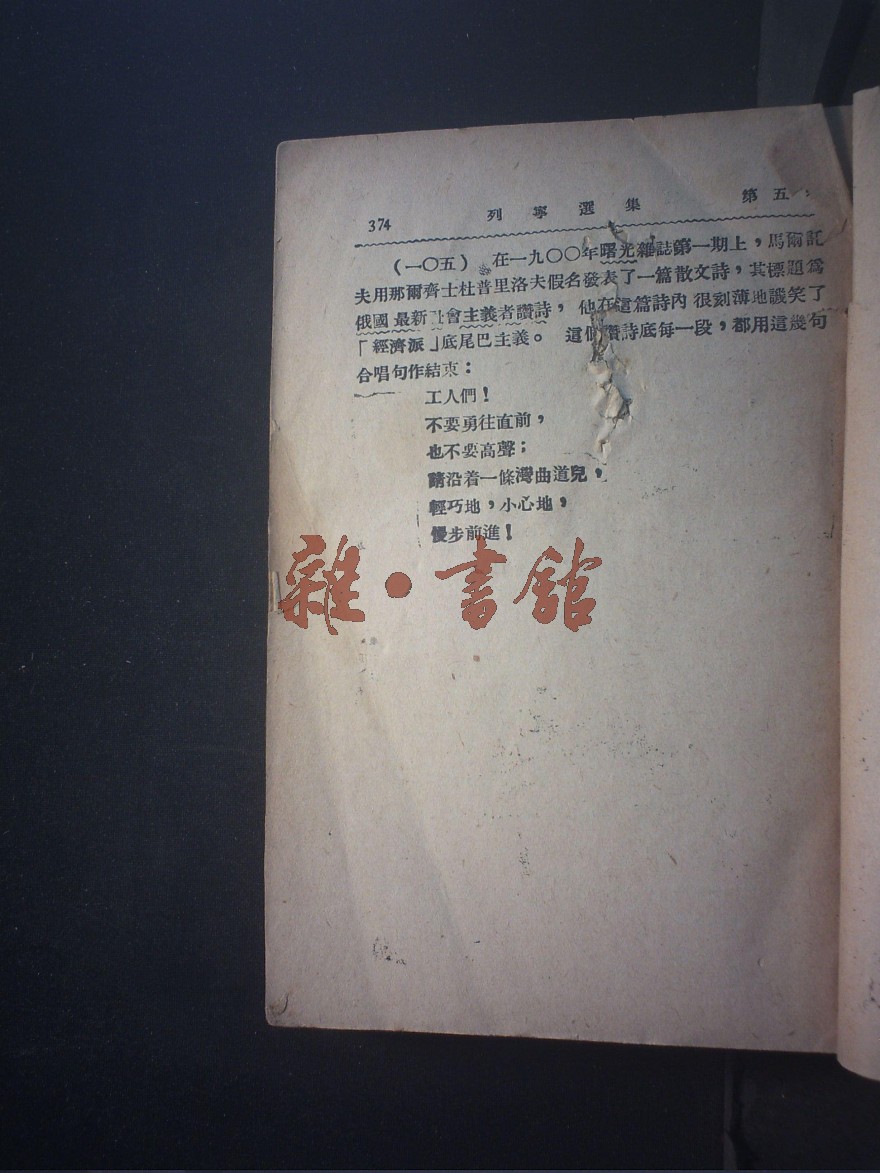 374 列寧選集 第五
(一〇五) 在一九〇〇年曙光雜誌第一期上，馬爾託
夫用那爾齊士杜普里洛夫假名發表了一篇散文詩，其標題爲
俄國最新社會主義者讚詩， 他在這篇詩內很刻薄地譏笑了
「經濟派」底尾巴主義。 這個讚詩底每一段，都用這幾句
合唱句作結束：
工人們！
不要勇往直前，
也不要高聲；
請沿着一條灣曲道兒，
輕巧地，小心地，
慢步前進！
雜·書館